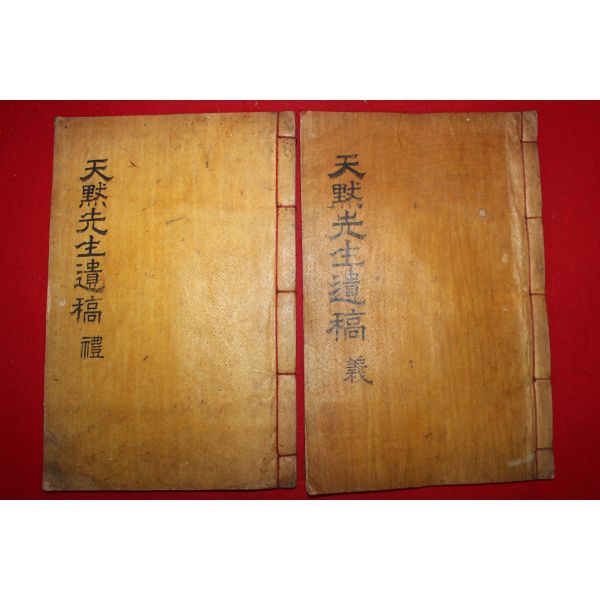 天默先生遺稿 禮
天默先生遺稿 義